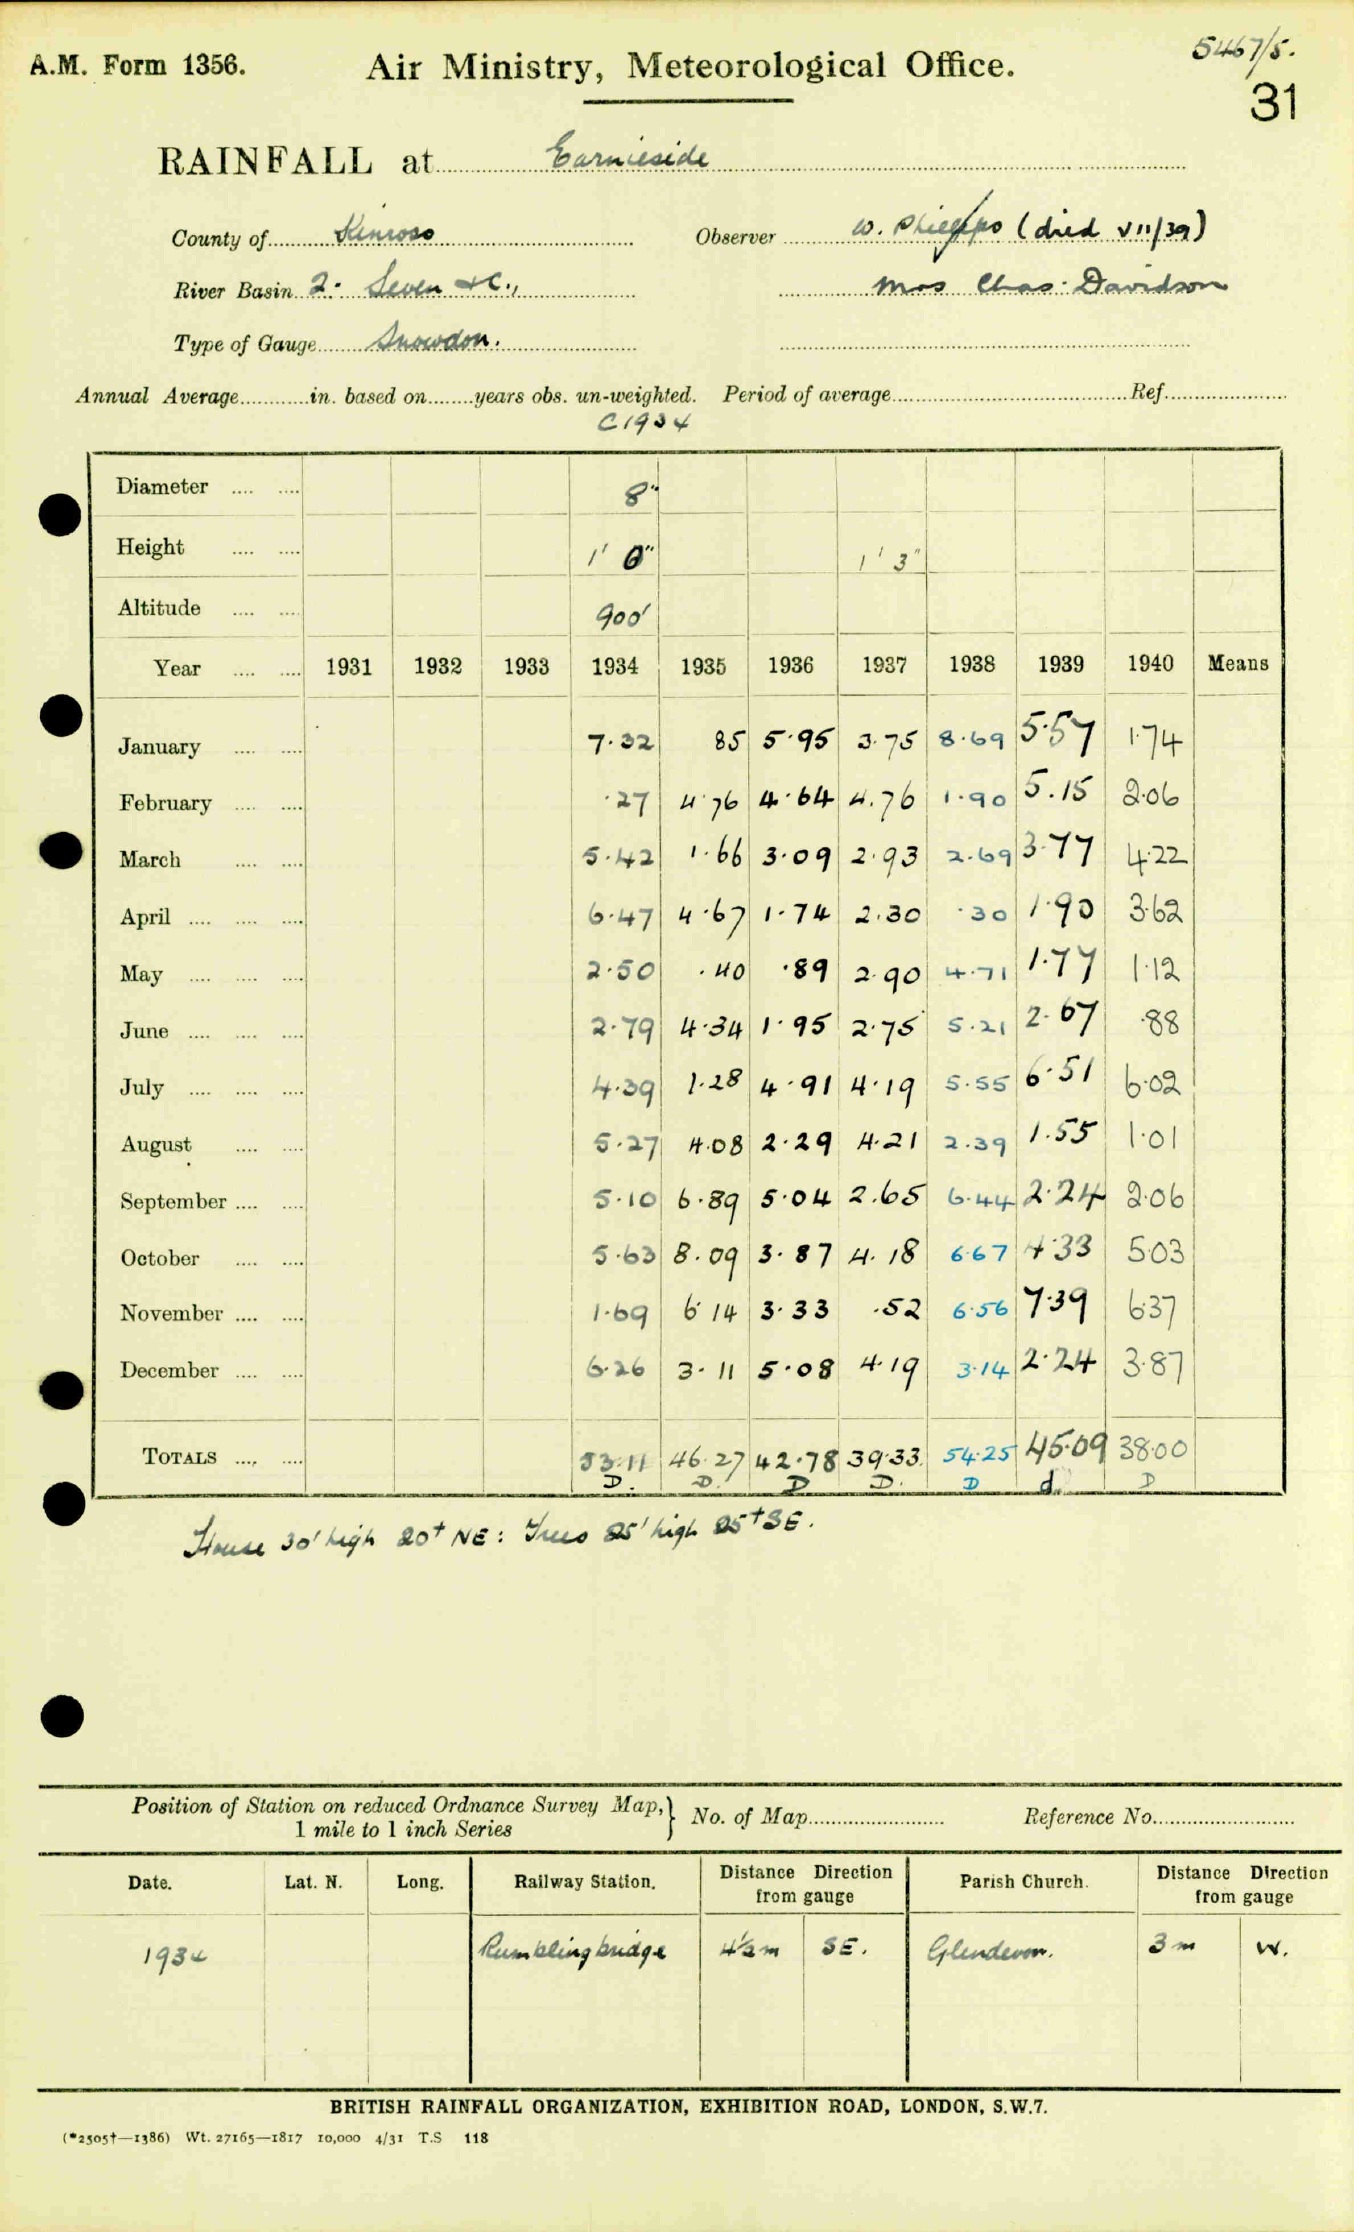 5467/5.
A.M. Form 1356. Air Ministry, Meteorological Office.
31
RAINFALL at Earnieside
County of Kinross Observer W. Phillipps (died VII/39)
River Basin 2. Leven &c., Mrs Chas. Davidson
Type of Gauge Snowdon.
Annual Average in. based on years obs. un-weighted. Period of average Ref.
C1934
Diameter 8"
Height 1' 0" 1' 3"
Altitude 900'
Year 1931 1932 1933 1934 1935 1936 1937 1938 1939 1940 Means
January 7.32 85 5.95 3.75 8.69 5.57 1.74
February .27 4.76 4.64 4.76 1.90 5.15 2.06
March 5.42 1.66 3.09 2.93 2.69 3.77 4.22
April 6.47 4.67 1.74 2.30 .30 1.90 3.62
May 2.50 .40 .89 2.90 4.71 1.77 1.12
June 2.79 4.34 1.95 2.75 5.21 2.67 .88
July 4.39 1.28 4.91 4.19 5.55 6.51 6.02
August 5.27 4.08 2.29 4.21 2.39 1.55 1.01
September 5.10 6.89 5.04 2.65 6.44 2.24 2.06
October 5.63 8.09 3.87 4.18 6.67 4.33 5.03
November 1.69 6.14 3.33 .52 6.56 7.39 6.37
December 6.26 3.11 5.08 4.19 3.14 2.24 3.87
TOTALS 53.11 46.27 42.78 39.33 54.25 45.09 38.00
D. D. D D. D d. D
House 30' high 20+ NE: Trees 25' high 25+ SE.
Position of Station on reduced Ordnance Survey Map,} No. of Map Reference No.
1 mile to 1 inch Series
Date. Lat. N. Long. Railway Station. Distance Direction from gauge Parish Church. Distance Direction from gauge
1934 Rumblingbridge 4½m SE. Glendevon. 3m W.
BRITISH RAINFALL ORGANIZATION, EXHIBITION ROAD, LONDON, S.W.7.
(*2505†—1386) Wt. 27165—1817 10,000 4/31 T.S 118